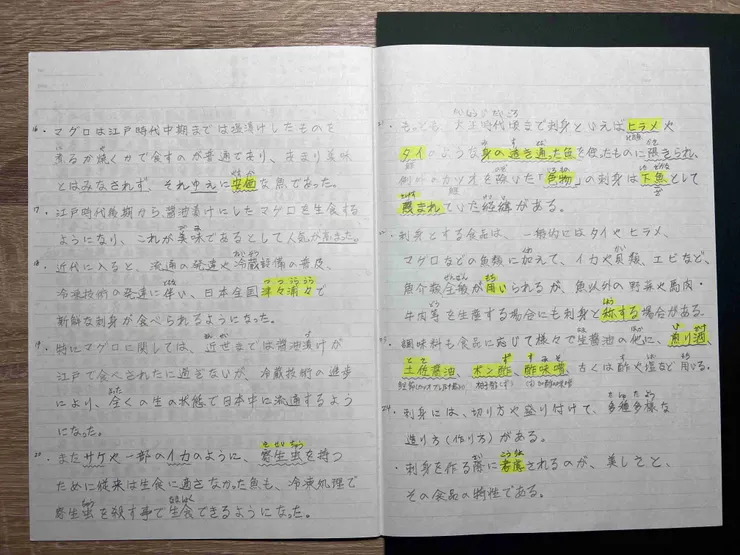 16. マグロは江戸時代中期までは塩漬けしたものを
煮るか焼くかで食すのが普通であり、あまり美味
とはみなされず、それゆえに安価な魚であった。
17. 江戸時代後期から醤油漬けにしたマグロを生食する
ようになり、これが美味であるとして人気が高まった。
18. 近代に入ると、流通の発達や冷蔵設備の普及、
冷凍技術の発達に伴い、日本全国津々浦々で
新鮮な刺身が食べられるようになった。
19. 特にマグロに関しては、近世までは醤油漬けが
江戸で食べられたに過ぎないが、冷蔵技術の進歩
により、全くの生の状態で日本中に流通するよう
になった。
20. またサケや一部のイカのように、寄生虫を持つ
ために従来は生食に適さなかった魚も、冷凍処理で
寄生虫を殺す事で生食できるようになった。
21. もっとも、大正時代頃まで刺身といえばヒラメや
タイのような身の透き通った魚を使ったものに限られ、
例外のカツオを除いた「色物」の刺身は下魚として
蔑まれていた経緯がある。
22. 刺身とする食品は、一般的にはタイや、ヒラメ、
マグロなどの魚類に加えて、イカや貝類、エビなど、
魚介類全般が用いられるが、魚以外の野菜や馬肉・
牛肉等を生産する場合にも刺身と称する場合がある。
23. 調味料も食品に応じて様々で生醤油の他に、煎り酒、
土佐醤油、ポン酢、酢味噌、古くは酢や塩など用いる。
24. 刺身には、切り方や盛り付けで、多種多様な
造り方(作り方)がある。
・刺身を作る際に考慮されるのが、美しさと、
その食品の特性である。